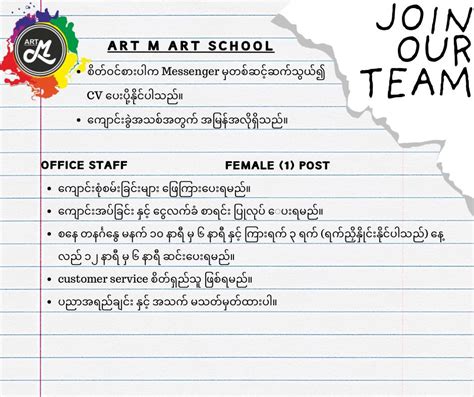 ART
M
JOIN
OUR
TEAM
ART M ART SCHOOL
စိတ်ဝင်စားပါက Messenger မှတစ်ဆင့်ဆက်သွယ်၍
CV ပေးပို့နိုင်ပါသည်။
ကျောင်းခွဲအသစ်အတွက် အမြန်အလိုရှိသည်။
OFFICE STAFF FEMALE (1) POST
ကျောင်းစုံစမ်းခြင်းများ ဖြေကြားပေးရမည်။
ကျောင်းအပ်ခြင်း နှင့် ငွေလက်ခံ စာရင်း ပြုလုပ် ပေးရမည်။
စနေ တနင်္ဂနွေ မနက် ၁၀ နာရီ မှ ၆ နာရီ နှင့် ကြားရက် ၃ ရက် (ရက်ညှိနှိုင်းနိုင်ပါသည်) နေ့
လည် ၁၂ နာရီ မှ ၆ နာရီ ဆင်းပေးရမည်။
customer service စိတ်ရှည်သူ ဖြစ်ရမည်။
ပညာအရည်ချင်း နှင့် အသက် မသတ်မှတ်ထားပါ။